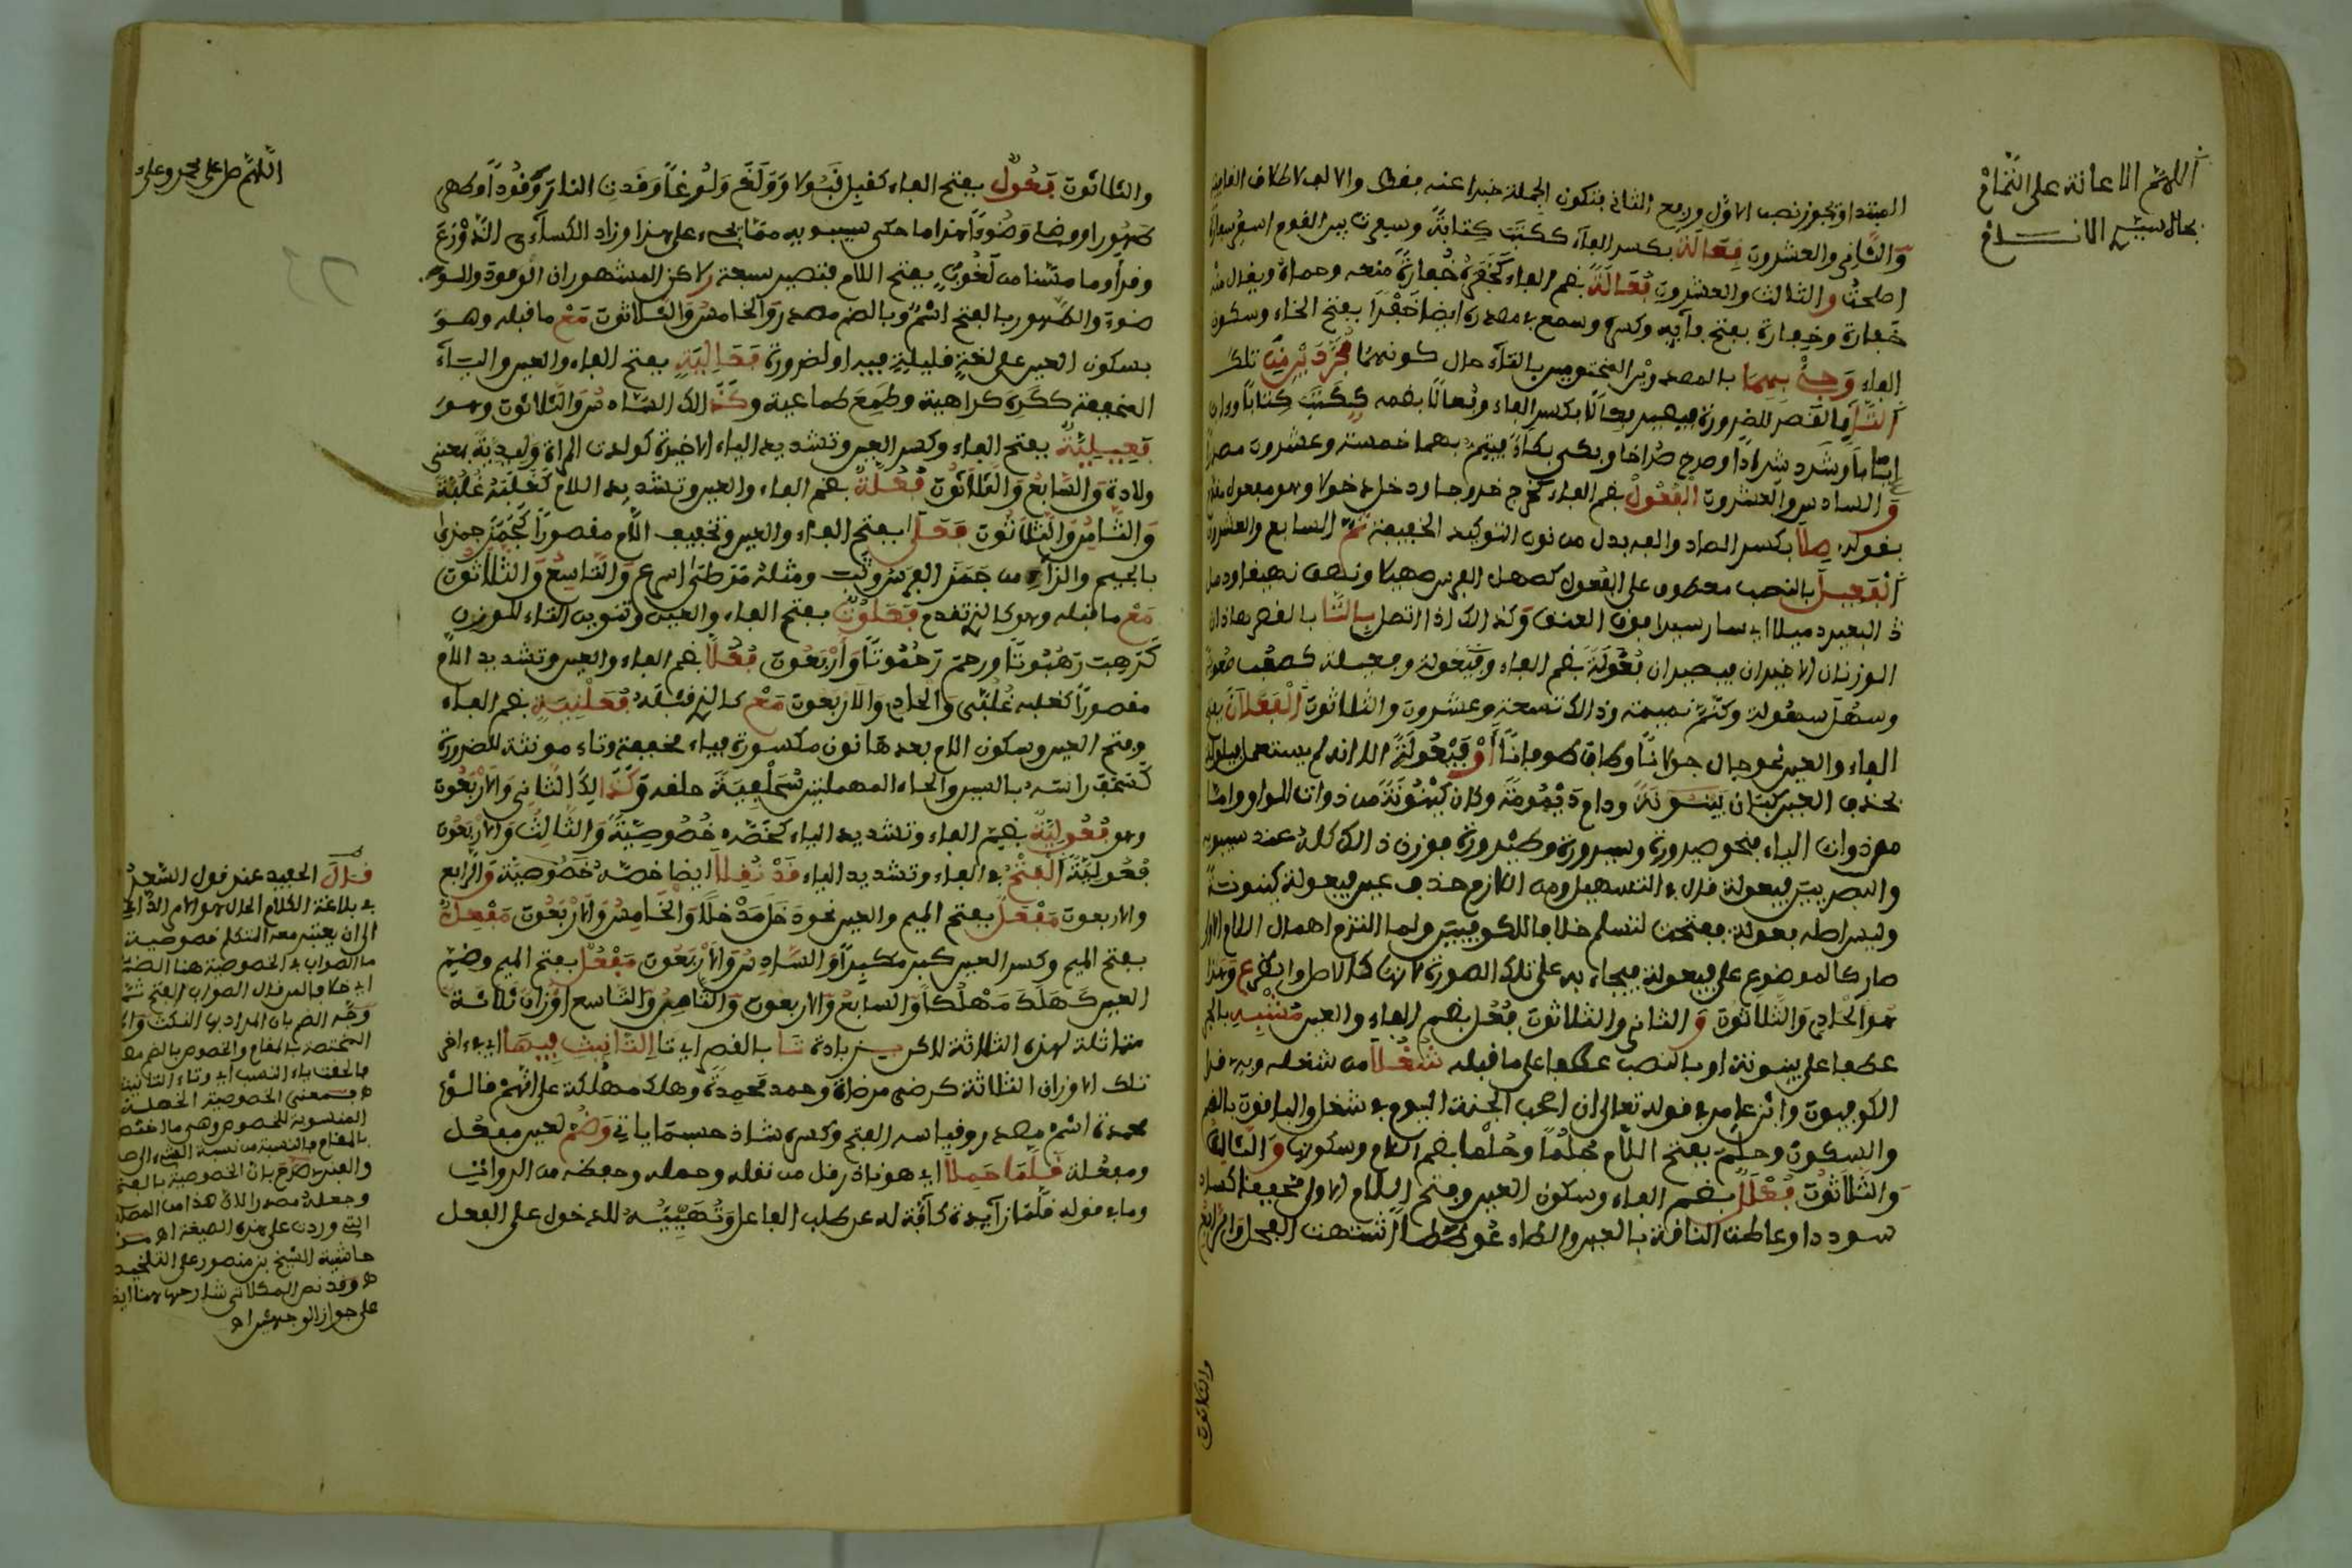 اللهم الاعانة على التمام
بجاه سيد الانام
المبتدا ويجوز نصب الاول ورفع الثاني فتكون الجملة خبرا عنه فقط والالف لاطلاق القافية
وَالثاني والعشرون فِعَالَة بكسر الفاء ككتبَ كِتابَةً وسفرت بين القوم اسفر سفارة
اصلحت والثالث والعشرون فُعَالَةً بضم الفاء كخَفَرَهُ خُفارَةً منعه وحماه ويقال فيه
خَفارة وخِفارة بفتح فائه وكسره وسمع في مصدره ايضا خَفْرًا بفتح الخاء وسكون
الفاء وَجِئْ بِهِمَا بالمصدرين المختومين بالتاء حال كونهما مُجَرَّدَيْنِ مِنَ تلك
التَّا بالقصر للضرورة فيصير فِعَالًا بكسر الفاء وفُعالًا بضمه ككتبَ كِتابًا
وشرد شِرادًا وصرخ صُراخا وبكى بكاءً فيتم بهما خمسة وعشرون مصدرا
وَالسادس والعشرون الفُعُولْ بضم الفاء كخرج خروجا ودخل دخولا وهو مفعول مقدم
بقوله صِلَا بكسر الصاد والفه بدل من نون التوكيد الخفيفة ثمّ السابع والعشرون
الْفَعِيلَ بالنصب معطوف على الفُعول كصهل الفرس صهيلا ونهق نهيقا وذمل
البعير ذميلا اي سار سيرا فوق العنق وَكذالك اذا اتصل بِالتَّا بالقصر هاذان
الوزنان الاخيران فيصيران فُعُولَةَ بضم الفاء وفعيلة كصعُب صعوبة
وسهُل سهولة ونمّ نميمة وذالك تسعة وعشرون والثلاثون الْفَعَلَانَ بفتح
الفاء والعين نحو جال جولانًا وطاف طوفانًا أَوْ فَيْعُولَةً الا انه لم يستعمل
بحذف العين كبان بَيْنونةً ودام دَيْمُومَةً وكان كَيْنُونَةً من ذوات الواو وامّا
من ذوات الياء فنحو صيرورة وسيرورة وطيرورة فوزن ذالك كله عند سيبويه
والبصريين فيعولة قال في التسهيل ومن اللازم حذف عين فيعولة كينونةً
وليس اصله فعولة ففتحت لتسلم خلافا للكوفيين ولما التزم اهمال
صار كالموضوع على فيعولة فيجاء به على تلك الصورة لانها كالاصل
هو الحادي وَالثَّلاثُونَ وَ الثاني والثلاثون فُعُل بضم الفاء والعين مُشْبِهِ بالجر
عطفا على بينونة او بالنصب عطفا على ما قبله شُغُلَا من شغله وبه قرا
الكوفيون وابن عامر في قوله تعالى ان اصحب الجنة اليوم في شغل والباقون بالضم
والسكون وحلَم بفتح اللام حُلُمًا وحُلْما بضم اللام وسكونها وَالثَّالِثُ
وَالثَّلاثُونَ فُعْلَلٌ بضم الفاء وسكون العين وفتح اللام الاولى مخففة كساد
سوددا وعاطت الناقة بالعين والطاء عُوطَطا اشتهت الفحل والرابع
والثلاثون
اللهم صل على محمد وعلى
والثلاثون فَعُولٌ بفتح الفاء كقبل قَبُولا وَوَلَعَ وَلُوعًا وَقدت النار وَقُودًا وطهر
طَهُورا ووضا وَضُوءًا هذا ما حكى سيبويه مما يجىء على هذا وزاد الكسائي الْوَزُوعَ
وقرا وما مسنا من لَغُوب بفتح اللام فتصير سبعة لاكن المشهور ان الوقود والو
ضوء والطهور بالفتح اسْمٌ وبالضم مصدر وَالخامسُ وَالثَّلاثون مَعْ ما قبله وهو
بسكون العين على لغة قليلة فيه او لضرورة فَعَالِيَةٍ بفتح الفاء والعين والياء
الخفيفة ككَرِهَ كراهية وطَمِعَ طماعية وكَذالك السَّادسُ وَالثَّلاثون وهو
فَعِيلِيَّةٌ بفتح الفاء وكسر العين وتشديد الياء الاخيرة كولدت المراة وَلِيدِيّةً بمعنى
ولادة وَالسَّابعُ وَالثَّلاثُون فُعُلَّةٌ بضم الفاء والعين وتشديد اللام كَغَلَبَهُ غُلُبَّةً
وَالثَّامِنُ وَالثَّلَاثُونَ فَعَلَى بفتح الفاء والعين وتخفيف اللام مقصورًا كَجَمَزَ جمزى
بالجيم والزاء من جَمَزَ الفرس وثب ومثله مَرَطَى اسرع وَالتَّاسِعُ وَالثَّلاثُون
مَعْ ما قبله وهو كالذي تقدم فَعَلُوتٌ بفتح الفاء والعين وتنوين التاء للوزن
كَرَهِبَ رَهَبُوتًا ورحم رَحَمُوتًا وَارْبَعُونَ فُعُلَّا بضم الفاء والعين وتشديد اللام
مقصورًا كغلبه غُلُبَّى وَالحادي وَالاربعون مَعْ كالذي قبلَهُ فُعَلْنِيَةٍ بضم الفاء
وفتح العين وسكون اللام بعدها نون مكسورة فياء مخففة وتاء مونثة للضرورة
كَسَحَفَ راسَه بالسين والحاء المهملتين سُحَفْنِيَةً حلقه وَكَذالِكَ الثَّانِي وَالارْبَعُون
وهو فُعُولِيَّةٌ بضم الفاء وتشديد الياء كخصّه خُصُوصِيَّةً وَالثَّالِثُ وَالاربعون
فَعُولِيَّةَ الفتْحُ في الفاء وتشديد الياء قَدْ نُقِلَا ايضا خصّه خَصُوصِيّة وَالرابع
والاربعون مَفْعَلٌ بفتح الميم والعين نحو دَخَل مَدْخَلًا وَالخَامِسُ وَالارْبَعُون مَفْعِلٌ
بفتح الميم وكسر العين كبِر مَكْبِرًا وَالسَّادِسُ وَالارْبَعُون مَفْعُلٌ بفتح الميم وضم
العين كَهَلَكَ مَهْلُكًا وَالسابعُ والاربعون وَالثَّامِنُ وَالتَّاسِع اوْزان ثلاثة
مماثلة لهذه الثلاثة لاكن بزيادة تَا بالقصر اي تا التَّانِيثِ فِيهَا اي في
تلك الاوزان الثلاثة كرضى مرضاة وحمد مَحمِدَة وهلك مهلُكَة على انهم قالوا
محمدة اسْمُ مصدر وقياسه الفتح وكسره شاذ حسبما ياتي وَضُمّ لعين مفعُل
ومفعُلة قَلَّمَا حُمِلَا اي هو نادر قل من نقله وحمله وحفظه من الرواة
وما في قوله قلّمَا زايدة كافّة له عن طلب الفاعل وَتُهَيِّئُهُ للدخول على الفعل
قال الحفيد عند قول السَّعد
في بلاغة الكلام الحال هو الامر الداعي
الى ان يعتبر معه المتكلم خصوصية
ما الصواب في الخصوصية هنا الضم
اي خلافا لمن قال الصواب الفتح ثم
وجّه الضم بان المراد بها النكت
المختصة بالمقام والخصوص بالضم
فالحقت ياء النسب اي وتاء التانيث
فمعنى الخصوصية الخصلة
المنسوبة للخصوص
بالمقام
والفيرصرّح بان الخصوصية بالفتح
وجعله مصدرا لان هذا من المصادر
التي وردت على هذه الصيغة اهـ من
حاشية الشيخ بن منصور على التلخيص
وقد نص المكلاتي شارحها هنا ايضا
على جواز الوجهين اهـ